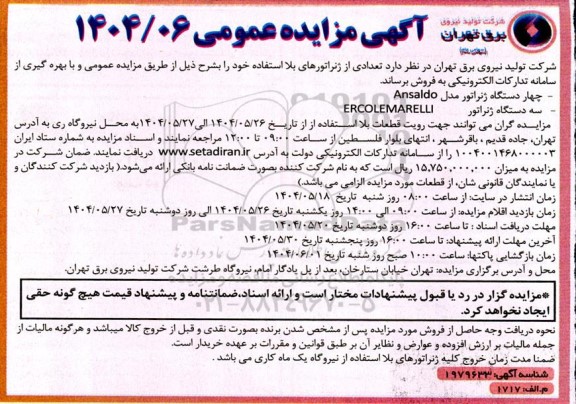 آگهی مزایده عمومی ۱۴۰۴/۰۶
شرکت تولید نیروی
برق تهران
شرکت تولید نیروی برق تهران در نظر دارد تعدادی از ژنراتورهای بلا استفاده خود را بشرح ذیل از طریق مزایده عمومی و با بهره گیری از
سامانه تدارکات الکترونیکی به فروش برساند.
- چهار دستگاه ژنراتور مدل Ansaldo
- سه دستگاه ژنراتور ERCOLEMARELLI
مزایده گران می توانند جهت رویت قطعات بلا استفاده از از تاریخ ۱۴۰۴/۰۵/۲۶ الی ۱۴۰۴/۰۵/۲۷ به محل نیروگاه ری به آدرس
تهران، جاده قدیم ، باقرشهر ، انتهای بلوار فلسطین از ساعت ۰۹:۰۰ تا ۱۲:۰۰ مراجعه نمایند و اسناد مزایده به شماره ستاد ایران
۱۰۰۴۰۰۱۴۶۸۰۰۰۰۰۳ را از سامانه تدارکات الکترونیکی دولت به آدرس www.setadiran.ir دریافت نمایند. ضمان شرکت در
مزایده به میزان ۱۵,۷۵۰,۰۰۰,۰۰۰ ریال است که به نام شرکت کننده بصورت ضمانت نامه بانکی ارائه می‌شود.( بازدید شرکت کنندگان و
یا نمایندگان قانونی شان، از قطعات مورد مزایده الزامی می باشد.)
زمان انتشار در سایت: از ساعت ۰۸:۰۰ روز شنبه تاریخ ۱۴۰۴/۰۵/۱۸
زمان بازدید اقلام مزایده: از ساعت ۰۹:۰۰ الی ۱۴:۰۰ روز یکشنبه تاریخ ۱۴۰۴/۰۵/۲۶ الی روز دوشنبه تاریخ ۱۴۰۴/۰۵/۲۷
مهلت دریافت اسناد : تا ساعت ۱۶:۰۰ روز دوشنبه تاریخ ۱۴۰۴/۰۵/۲۰
آخرین مهلت ارائه پیشنهاد: تا ساعت ۱۶:۰۰ روز پنجشنبه تاریخ ۱۴۰۴/۰۵/۳۰
زمان بازگشایی پاکتها: ساعت ۱۰:۰۰ صبح روز شنبه تاریخ ۱۴۰۴/۰۶/۰۱
محل و آدرس برگزاری مزایده: تهران خیابان ستارخان، بعد از پل یادگار امام، نیروگاه طرشت شرکت تولید نیروی برق تهران.
*مزایده گزار در رد یا قبول پیشنهادات مختار است و ارائه اسناد،ضمانتنامه و پیشنهاد قیمت هیچ گونه حقی
ایجاد نخواهد کرد.
نحوه دریافت وجه حاصل از فروش مورد مزایده پس از مشخص شدن برنده بصورت نقدی و قبل از خروج کالا میباشد و هرگونه مالیات از
جمله مالیات بر ارزش افزوده و عوارض و نظایر آن بر طبق قوانین و مقررات بر عهده خریدار است.
ضمنا مدت زمان خروج کلیه ژنراتورهای بلا استفاده از نیروگاه یک ماه کاری می باشد .
شناسه آگهی: ۱۹۷۹۶۳۳
م.الف: ۱۷۱۷